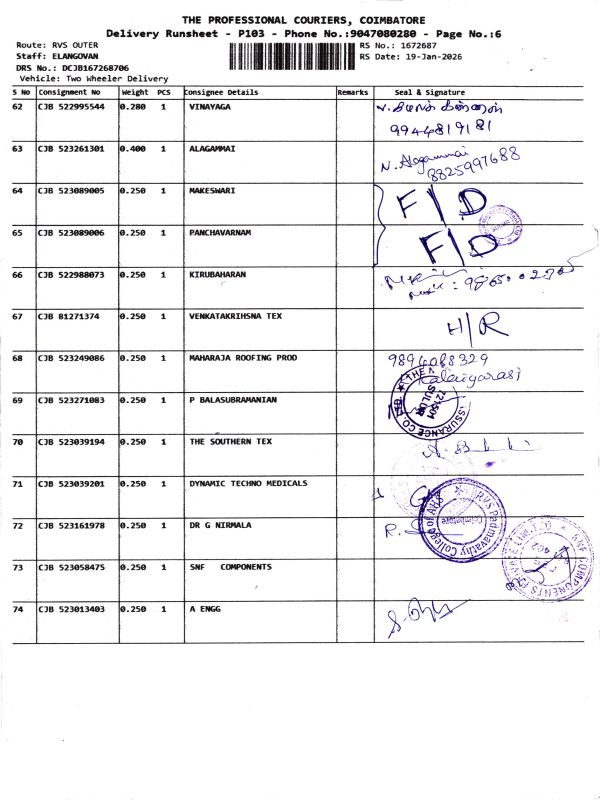 THE PROFESSIONAL COURIERS, COIMBATORE
Delivery Runsheet - P103 - Phone No.:9047080280 - Page No.:6
Route: RVS OUTER RS No.: 1672687
Staff: ELANGOVAN RS Date: 19-Jan-2026
DRS No.: DCJB167268706
Vehicle: Two Wheeler Delivery
S No Consignment No Weight PCS Consignee Details Remarks Seal & Signature
62 CJB 522995544 0.280 1 VINAYAGA
9944819181
63 CJB 523261301 0.400 1 ALAGAMMAI N. Alagammai
8825997688
64 CJB 523089005 0.250 1 MAKESWARI F/D
65 CJB 523089006 0.250 1 PANCHAVARNAM F/D
66 CJB 522988073 0.250 1 KIRUBAHARAN
67 CJB 81271374 0.250 1 VENKATAKRIHSNA TEX H/R
68 CJB 523249086 0.250 1 MAHARAJA ROOFING PROD 9894088329
Kalaiyarasi
69 CJB 523271083 0.250 1 P BALASUBRAMANIAN 721501 SULUR
70 CJB 523039194 0.250 1 THE SOUTHERN TEX
71 CJB 523039201 0.250 1 DYNAMIC TECHNO MEDICALS
72 CJB 523161978 0.250 1 DR G NIRMALA RVS Padmavathy College of AHS Coimbatore
73 CJB 523058475 0.250 1 SNF COMPONENTS SNF COMPONENTS
74 CJB 523013403 0.250 1 A ENGG